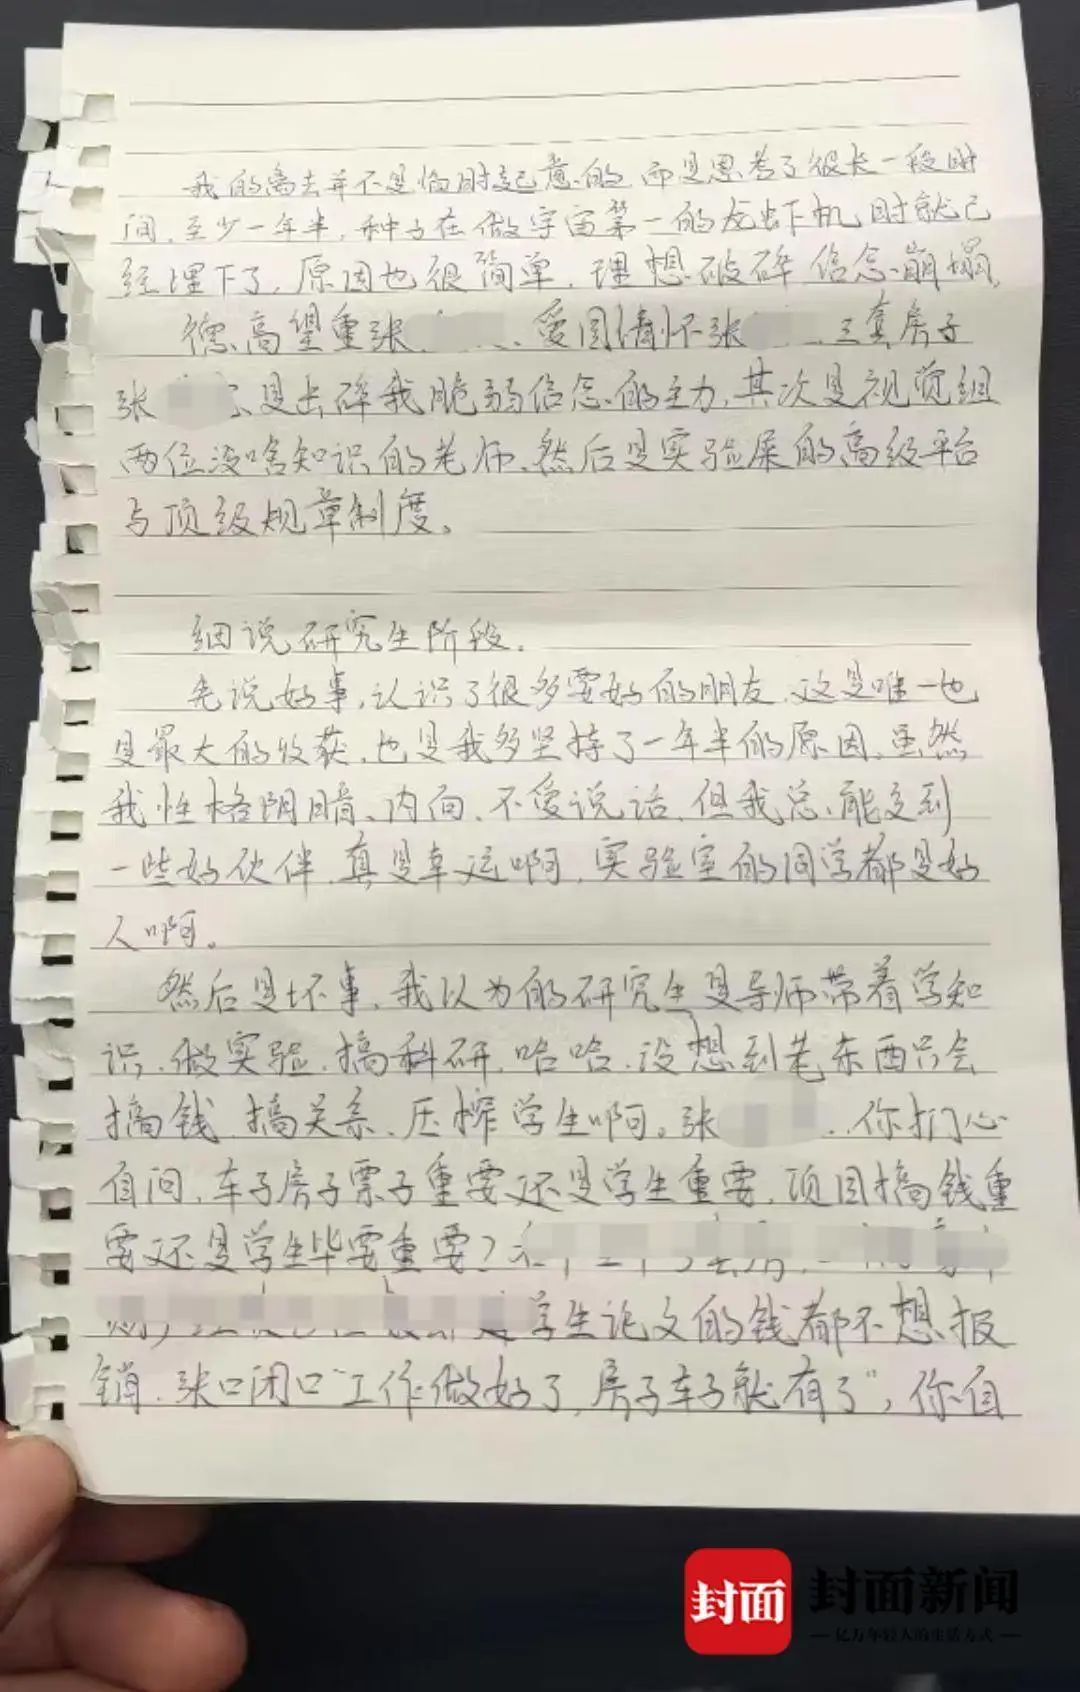 我的离去并不是临时起意的,而是思考了很长一段时
间,至少一年半,种子在做宇宙第一的龙虾机时就已
经埋下了,原因也很简单,理想破碎 信念崩塌,
德高望重张 爱国情怀张 三套房子
张 是击碎我脆弱信念的主力,其次是视觉组
两位没啥知识的老师,然后是实验屎的高级平台
与顶级规章制度。
细说研究生阶段.
先说好事,认识了很多要好的朋友,这是唯一也
是最大的收获,也是我多坚持了一年半的原因,虽然
我性格阴暗、内向、不爱说话,但我总能交到
一些好伙伴,真是幸运啊,实验室的同学都是好
人啊。
然后是坏事,我以为的研究生是导师带着学知
识,做实验,搞科研,哈哈,没想到老东西只会
搞钱、搞关系、压榨学生啊。张 你扪心
自问,车子房子票子重要还是学生重要,项目搞钱重
要还是学生毕要重要?
学生论文的钱都不想报
销,张口闭口“工作做好了,房子车子就有了”,你自
封面
封面新闻
亿万年轻人的生活方式